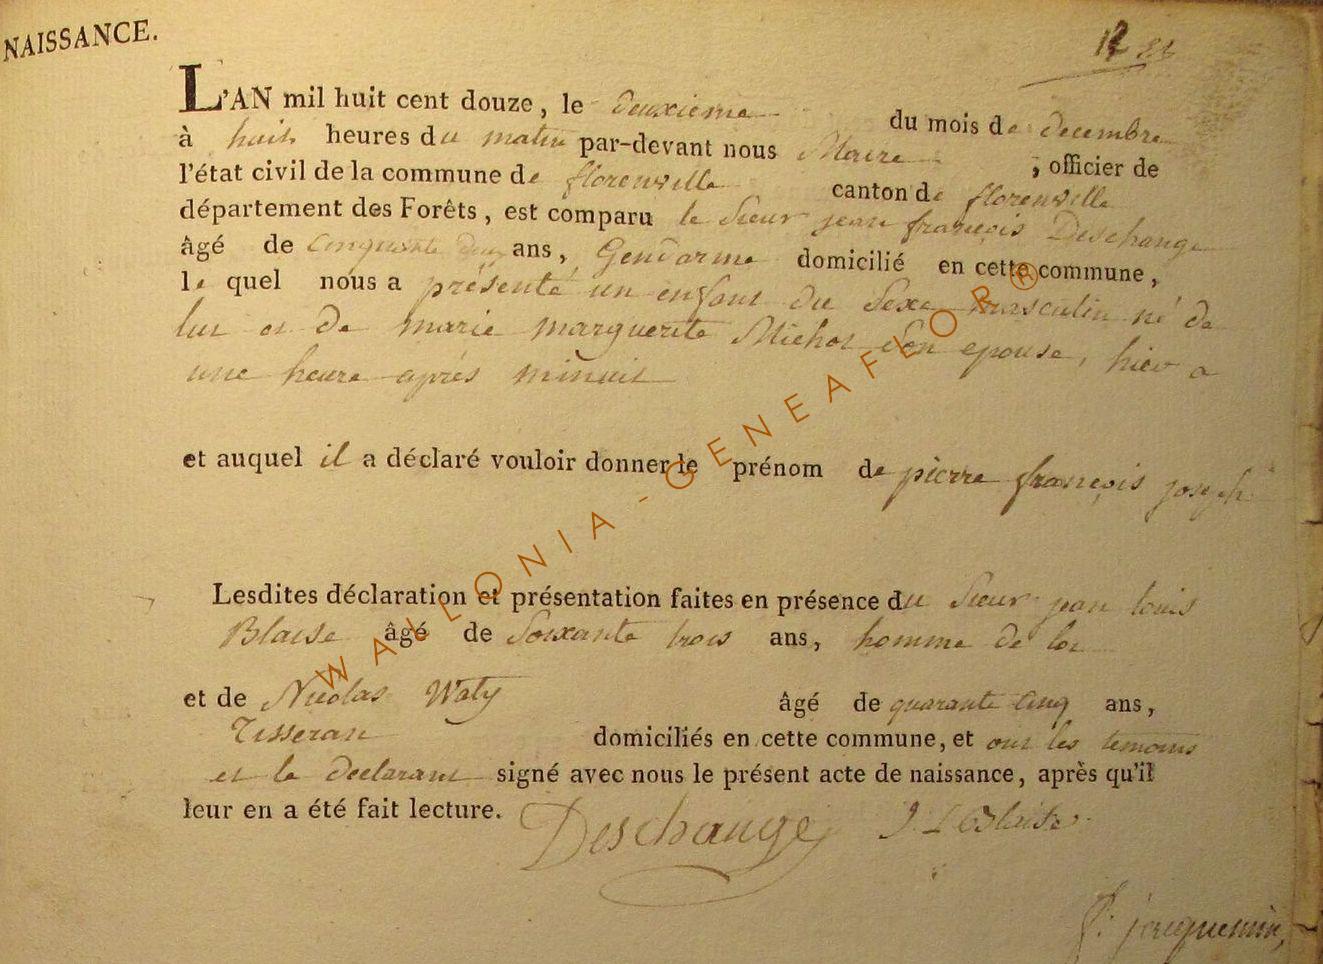 NAISSANCE.
12
L'AN mil huit cent douze, le deuxieme du mois de decembre
à huit heures du matin par-devant nous Maire ; officier de
l'état civil de la commune de florenville canton de florenville
département des Forêts, est comparu le Sieur jean françois Deschange
âgé de Cinquante deux ans, Gendarme domicilié en cette commune,
le quel nous a présenté un enfant du Sexe masculin né de
lui et de marie marguerite Michot Son epouse, hier a
une heure après minuit
et auquel il a déclaré vouloir donner le prénom de pierre françois joseph
Lesdites déclaration et présentation faites en présence du Sieur jean louis
Blaise âgé de Soixante trois ans, homme de loi
et de Nicolas Waty âgé de quarante Cinq ans,
Tisseran domiciliés en cette commune, et ont les temoins
et le declarant signé avec nous le présent acte de naissance, après qu'il
leur en a été fait lecture.
Deschange J L Blaise
jacquemin
WALLONIA-GENEAFLOR®